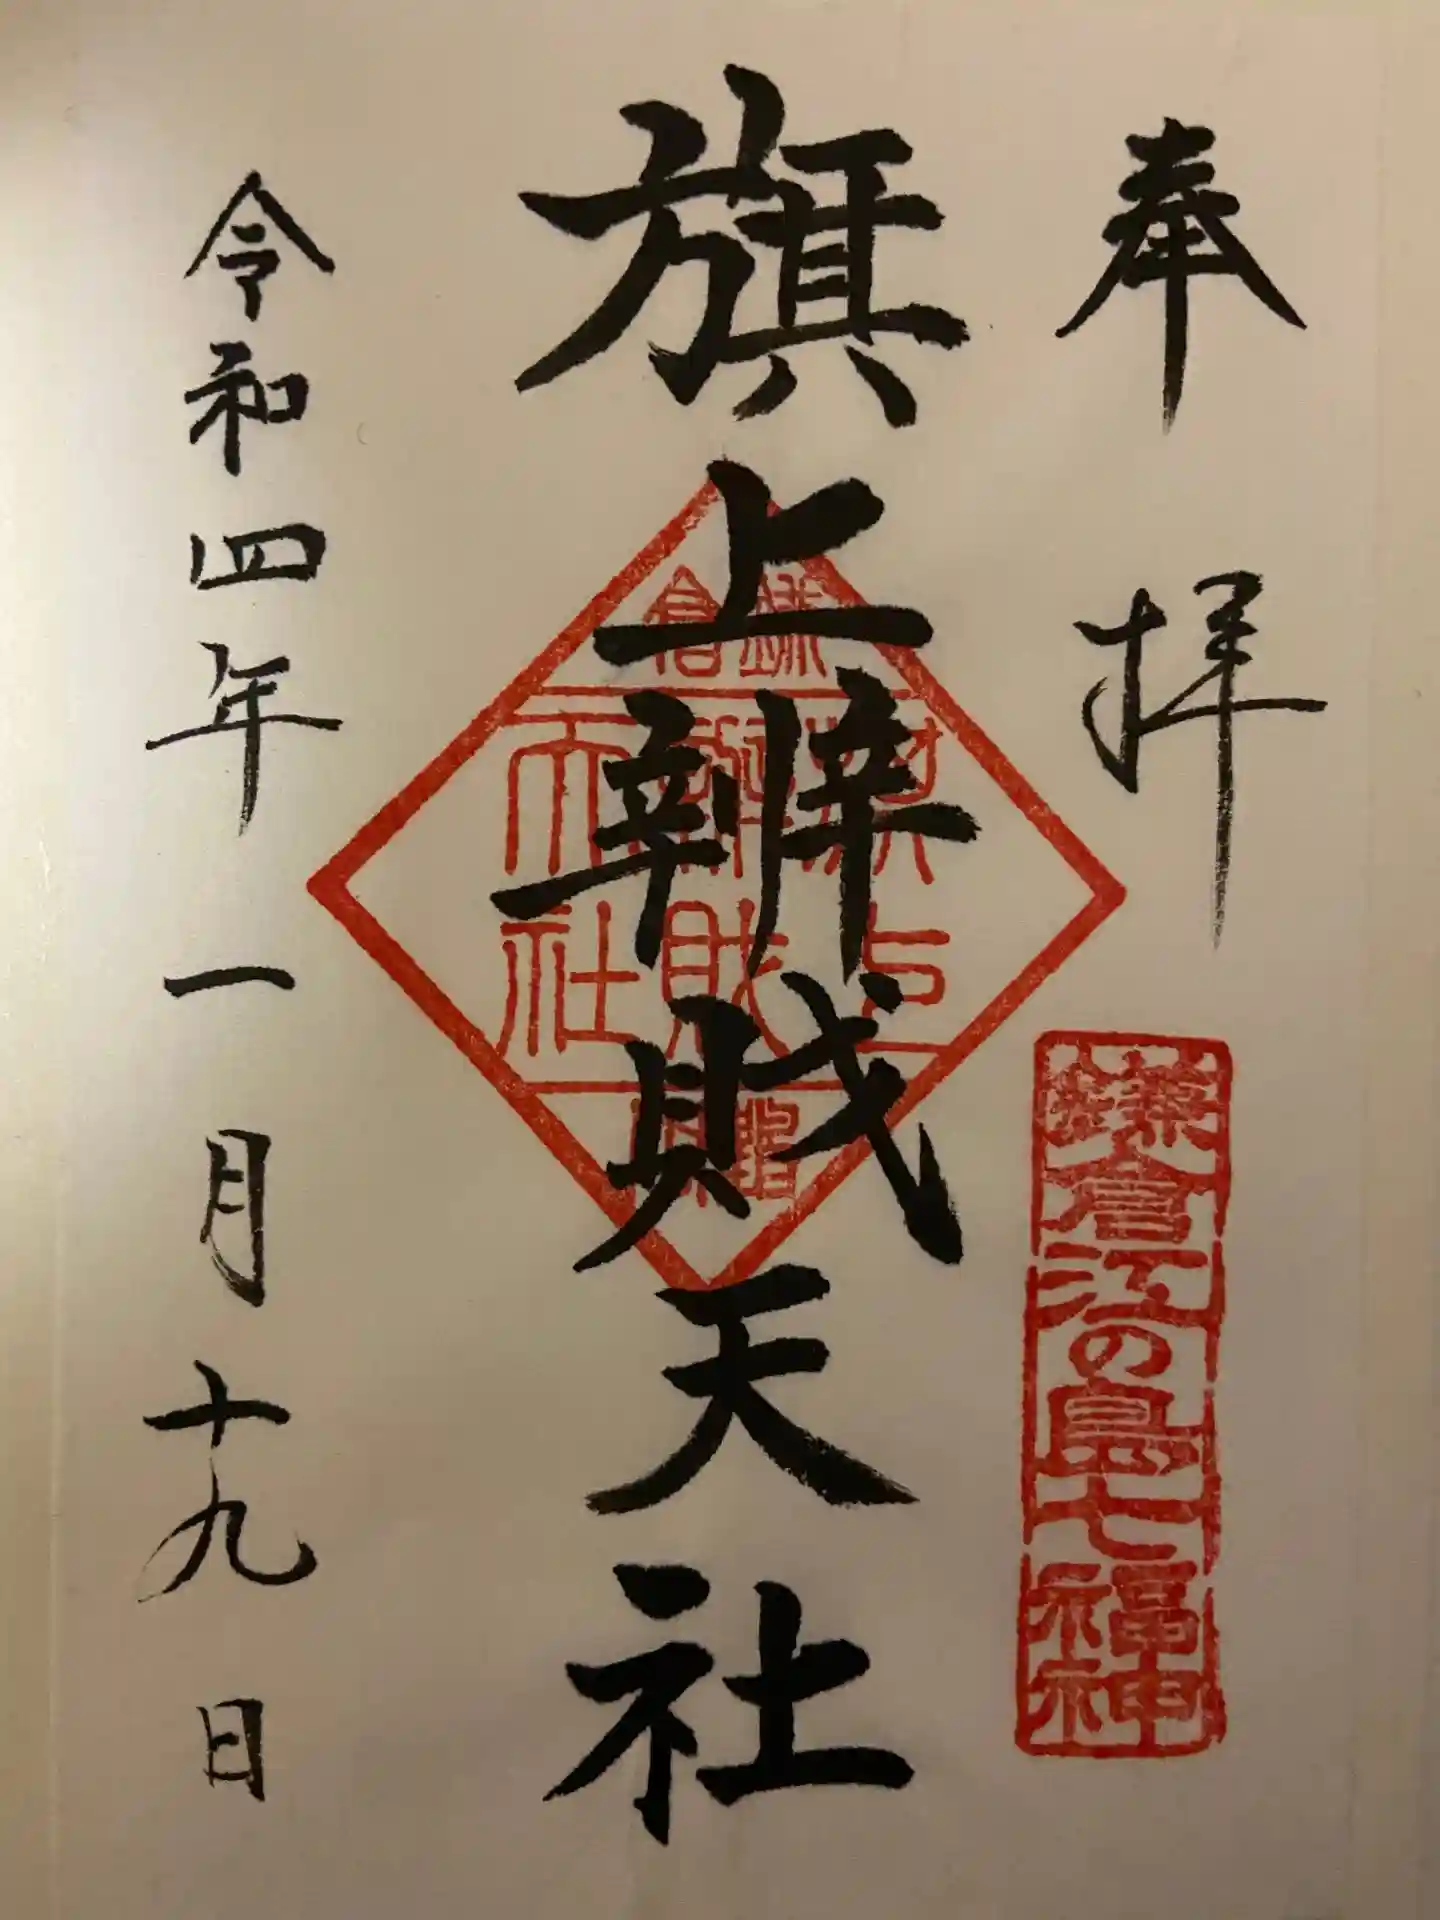 奉拝
鎌倉江の島七福神
旗上辨財天社
鎌倉
旗上
辨財
天社
令和四年一月十九日